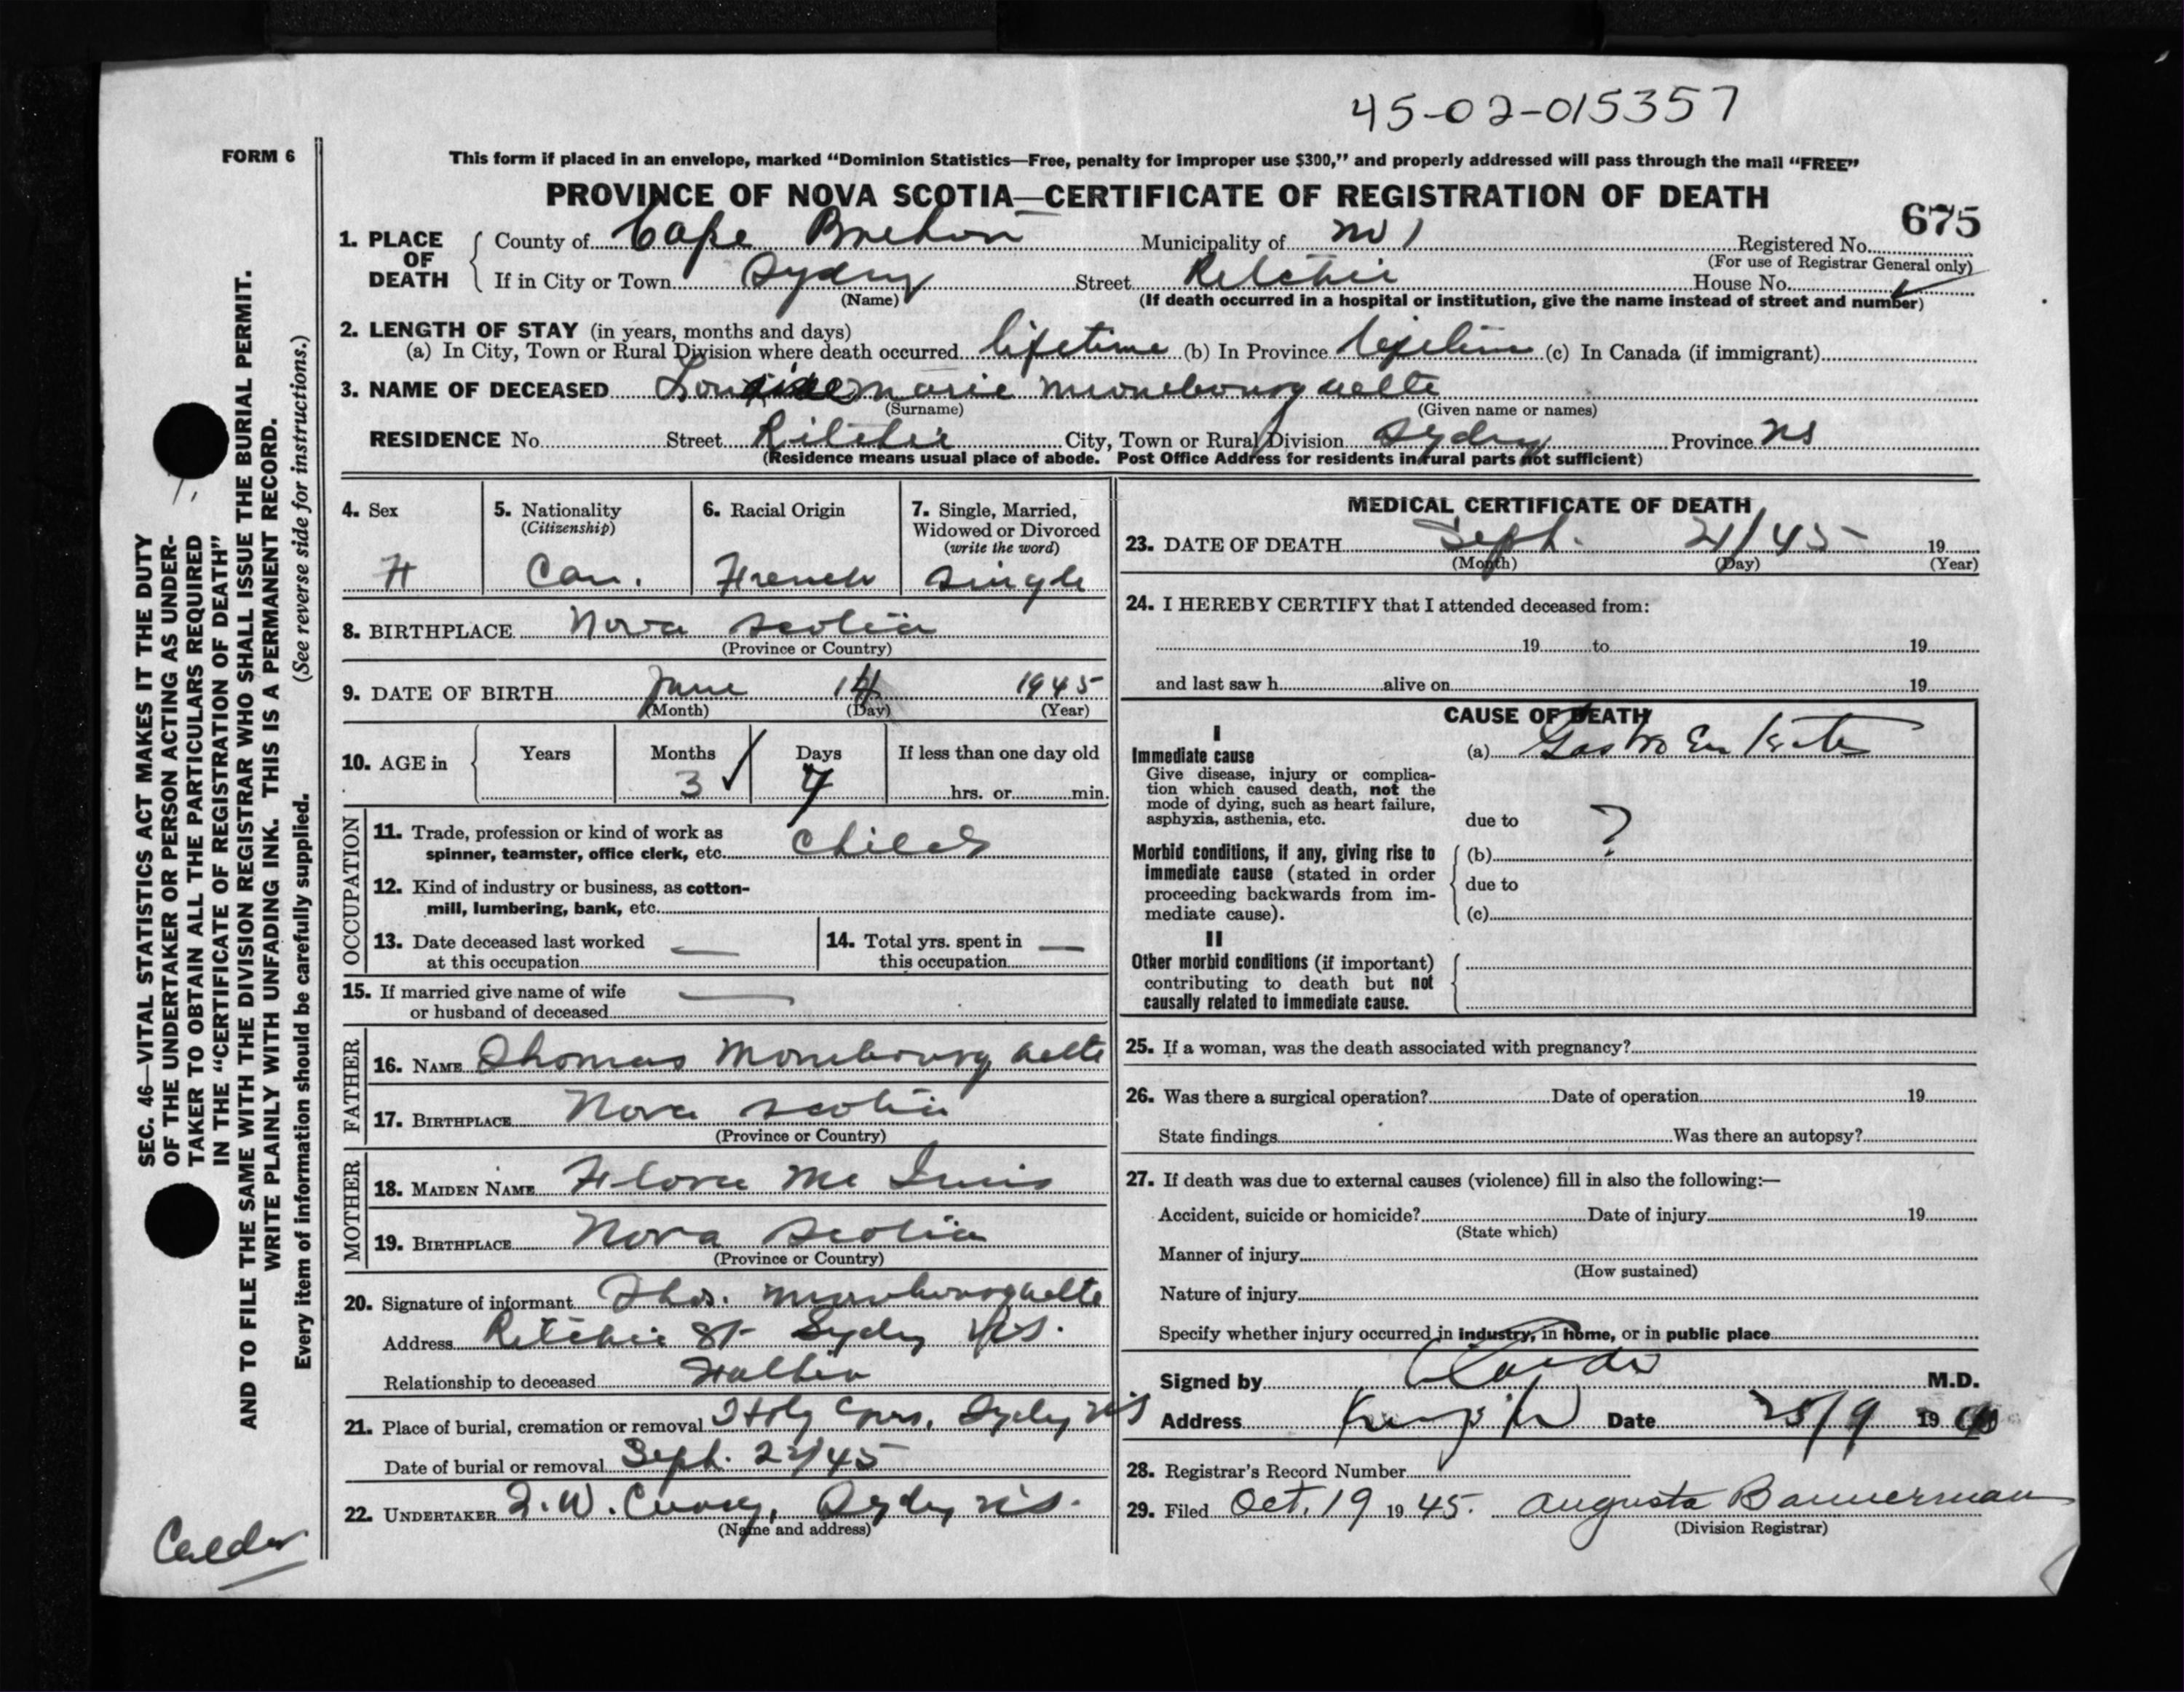 45-02-015357
FORM 6
This form if placed in an envelope, marked “Dominion Statistics—Free, penalty for improper use $300,” and properly addressed will pass through the mail “FREE”
PROVINCE OF NOVA SCOTIA—CERTIFICATE OF REGISTRATION OF DEATH
675
1. PLACE OF DEATH
County of Cape Breton Municipality of Registered No.
(For use of Registrar General only)
If in City or Town Sydney Street Ritchie House No.
(Name) (If death occurred in a hospital or institution, give the name instead of street and number)
2. LENGTH OF STAY (in years, months and days)
(a) In City, Town or Rural Division where death occurred lifetime (b) In Province lifetime (c) In Canada (if immigrant)
3. NAME OF DECEASED Marie Mombourquette
(Surname) (Given name or names)
RESIDENCE No. Street Ritchie City, Town or Rural Division Sydney Province NS
(Residence means usual place of abode. Post Office Address for residents in rural parts not sufficient)
4. Sex F
5. Nationality (Citizenship) Can.
6. Racial Origin French
7. Single, Married, Widowed or Divorced (write the word) Single
8. BIRTHPLACE Nova Scotia
(Province or Country)
9. DATE OF BIRTH June 14 1945
(Month) (Day) (Year)
10. AGE in Years Months 3 Days 7 If less than one day old
hrs. or min.
OCCUPATION
11. Trade, profession or kind of work as
spinner, teamster, office clerk, etc. Child
12. Kind of industry or business, as cotton-
mill, lumbering, bank, etc.
13. Date deceased last worked —
at this occupation
14. Total yrs. spent in —
this occupation
15. If married give name of wife —
or husband of deceased
FATHER
16. NAME Thomas Mombourquette
17. BIRTHPLACE Nova Scotia
(Province or Country)
MOTHER
18. MAIDEN NAME Flora Mc Innis
19. BIRTHPLACE Nova Scotia
(Province or Country)
20. Signature of informant Thos. Mombourquette
Address Ritchie St Sydney N.S.
Relationship to deceased Father
21. Place of burial, cremation or removal Holy Cross, Sydney NS
Date of burial or removal Sept. 22/45
22. UNDERTAKER Sydney N.S.
(Name and address)
MEDICAL CERTIFICATE OF DEATH
23. DATE OF DEATH Sept. 21/45 19
(Month) (Day) (Year)
24. I HEREBY CERTIFY that I attended deceased from:
19 to 19
and last saw h alive on 19
CAUSE OF DEATH
I
Immediate cause (a) Gastro Enteritis
Give disease, injury or complica-
tion which caused death, not the
mode of dying, such as heart failure,
asphyxia, asthenia, etc.
due to ?
Morbid conditions, if any, giving rise to
immediate cause (stated in order
proceeding backwards from im-
mediate cause).
(b)
due to
(c)
II
Other morbid conditions (if important)
contributing to death but not
causally related to immediate cause.
25. If a woman, was the death associated with pregnancy?
26. Was there a surgical operation? Date of operation 19
State findings Was there an autopsy?
27. If death was due to external causes (violence) fill in also the following:—
Accident, suicide or homicide? Date of injury 19
(State which)
Manner of injury
(How sustained)
Nature of injury
Specify whether injury occurred in industry, in home, or in public place
Signed by Calder M.D.
Address Date 25/9 19
28. Registrar's Record Number
29. Filed Oct. 19 1945. Augusta Bannerman
(Division Registrar)
SEC. 46—VITAL STATISTICS ACT MAKES IT THE DUTY
OF THE UNDERTAKER OR PERSON ACTING AS UNDER-
TAKER TO OBTAIN ALL THE PARTICULARS REQUIRED
IN THE “CERTIFICATE OF REGISTRATION OF DEATH”
AND TO FILE THE SAME WITH THE DIVISION REGISTRAR WHO SHALL ISSUE THE BURIAL PERMIT.
WRITE PLAINLY WITH UNFADING INK. THIS IS A PERMANENT RECORD.
Every item of information should be carefully supplied. (See reverse side for instructions.)
Calder